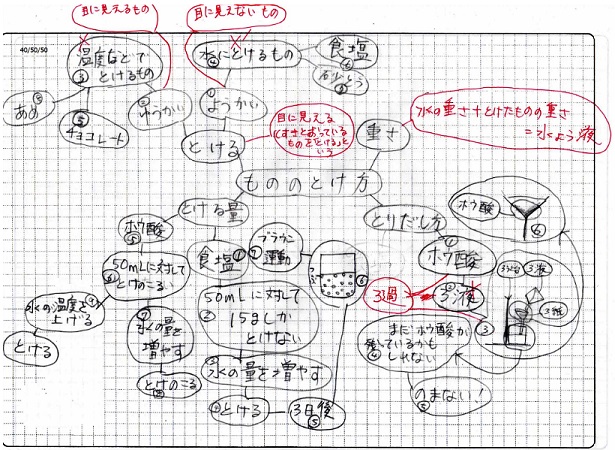 目に見えるもの
目に見えないもの
40/50/50
温度などで
とけるもの
③
水にとけるもの
④
食塩
砂とう
あめ
チョコレート
⑤
ゆうかい
ようかい
①
とける
目に見える
という
重さ
水の重さ+とけたものの重さ
=水よう液
もののとけ方
とける量
とりだし方
ホウ酸
⑤
食塩
ブラウン
運動
①
ホウ酸
ホウ酸
⑥
50mLに対して
とけのこる
水の温度を
上げる
とける
水の量を
増やす
とけのこる
50mLに対して
15gしか
とけない
②
水の量を増やす
とける
3日後
⑤
3過
3液
3液
③
まだホウ酸が
残っているかも
しれない
④
のまない!
⑤